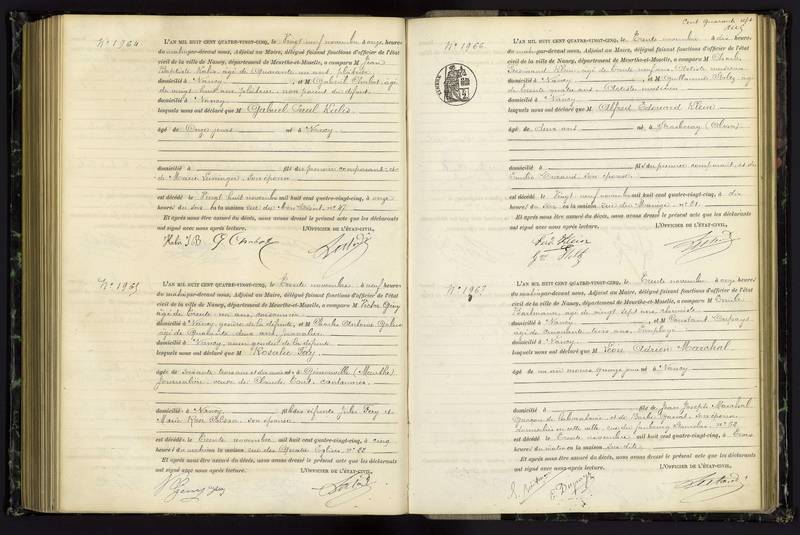 N° 1964
L'AN MIL HUIT CENT QUATRE-VINGT-CINQ, le Vingt neuf novembre à onze heures
du matin par-devant nous, Adjoint au Maire, délégué faisant fonctions d'officier de l'état
civil de la ville de Nancy, département de Meurthe-et-Moselle, a comparu M Jean
Baptiste âgé de Quarante un ans, plâtrier
domicilié à Nancy, et M Gabriel âgé
de vingt huit ans plâtrier non parent du défunt
domicilié à Nancy
lesquels nous ont déclaré que M Gabriel Paul
âgé de Douze jours né à Nancy
domicilié à fils du premier comparant et
de Marie son épouse
est décédé le Vingt huit novembre mil huit cent quatre-vingt-cinq, à onze
heures du soir en la maison rue de n° 47
Et après nous être assuré du décès, nous avons dressé le présent acte que les déclarants
ont signé avec nous après lecture. L'OFFICIER DE L'ÉTAT-CIVIL,
N° 1965
L'AN MIL HUIT CENT QUATRE-VINGT-CINQ, le Trente novembre à neuf heures
du matin par-devant nous, Adjoint au Maire, délégué faisant fonctions d'officier de l'état
civil de la ville de Nancy, département de Meurthe-et-Moselle, a comparu M Victor
âgé de trente un ans,
domicilié à Nancy, gendre de la défunte, et M Charles Antoine
âgé de Quarante deux ans, journalier
domicilié à Nancy, ami de la défunte
lesquels nous ont déclaré que M Rosalie
âgée de soixante trois ans et dix mois née à (Meurthe)
Journalière, veuve de Claude cantonnier
domiciliée à Nancy fille des défunts Jules et
Marie Rose son épouse
est décédée le Trente novembre mil huit cent quatre-vingt-cinq, à cinq
heures du matin en la maison rue des Quatre Églises, n° 22
Et après nous être assuré du décès, nous avons dressé le présent acte que les déclarants
ont signé avec nous après lecture. L'OFFICIER DE L'ÉTAT-CIVIL,
Cent quarante sept
N° 1966
L'AN MIL HUIT CENT QUATRE-VINGT-CINQ, le Trente novembre à dix heures
du matin par-devant nous, Adjoint au Maire, délégué faisant fonctions d'officier de l'état
civil de la ville de Nancy, département de Meurthe-et-Moselle, a comparu M Charles
Ferdinand Klein âgé de trente ans, Artiste musicien
domicilié à Nancy, et M Guillaume Stolz âgé
de trente ans, Artiste musicien
domicilié à Nancy
lesquels nous ont déclaré que M Alfred Edouard Klein
âgé de deux ans né à Strasbourg (Alsace)
domicilié à fils du premier comparant, et de
Emilie son épouse
est décédé le Vingt neuf novembre mil huit cent quatre-vingt-cinq, à dix
heures du soir en la maison rue du Manège n° 21
Et après nous être assuré du décès, nous avons dressé le présent acte que les déclarants
ont signé avec nous après lecture. L'OFFICIER DE L'ÉTAT-CIVIL,
Ferd. Klein
N° 1967
L'AN MIL HUIT CENT QUATRE-VINGT-CINQ, le Trente novembre à onze heures
du matin par-devant nous, Adjoint au Maire, délégué faisant fonctions d'officier de l'état
civil de la ville de Nancy, département de Meurthe-et-Moselle, a comparu M Emile
âgé de vingt sept ans, chimiste
domicilié à Nancy, et M Constant
âgé de Cinquante trois ans, Employé
domicilié à Nancy
lesquels nous ont déclaré que M Léon Adrien Marchal
âgé de un an mois quinze jours né à Nancy
domicilié à fils de Jean Joseph Marchal
Garçon de laboratoire, et de Barbe son épouse
domiciliés en cette ville, rue du faubourg Stanislas, n° 52
est décédé le Trente novembre mil huit cent quatre-vingt-cinq, à Trois
heures du matin en la maison sus dite
Et après nous être assuré du décès, nous avons dressé le présent acte que les déclarants
ont signé avec nous après lecture. L'OFFICIER DE L'ÉTAT-CIVIL,